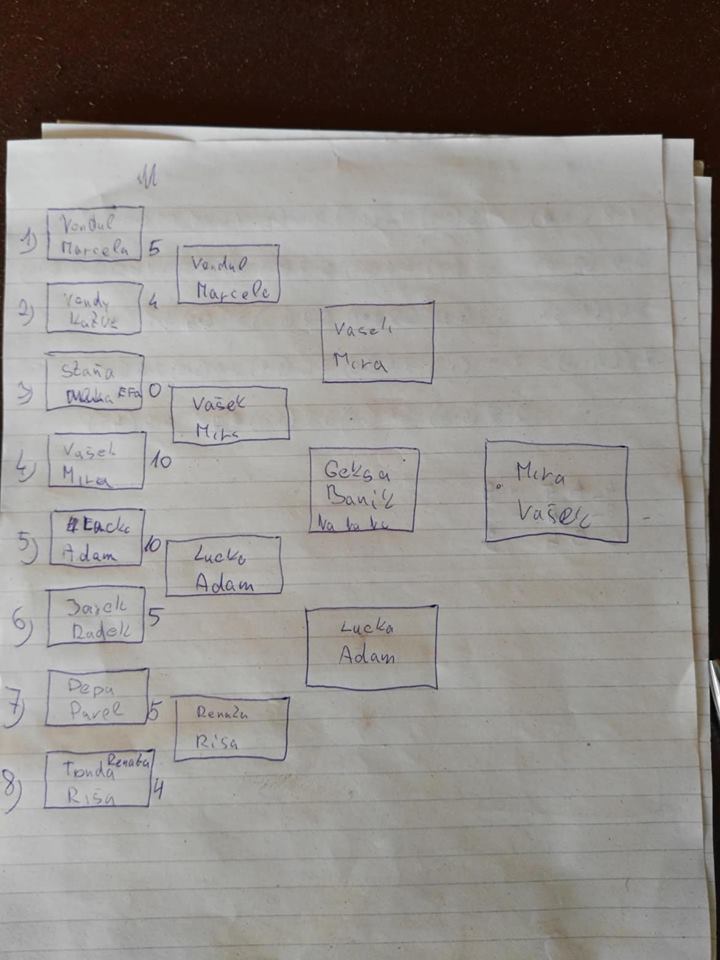 1) Vondul
Marcela 5
2) Vendy 4
Kažve
3) Staňa
EFa 0
4) Vašek
Mira 10
5) Lucka
Adam 10
6) Jarek
Radek 5
7) Pepa
Pavel 5
8) Tonda Renata
Riša 4
Vondul
Marcela
Vašek
Mira
Lucka
Adam
Renata
Riša
Vašek
Mira
Geksa
Banik
Lucka
Adam
Mira
Vašek